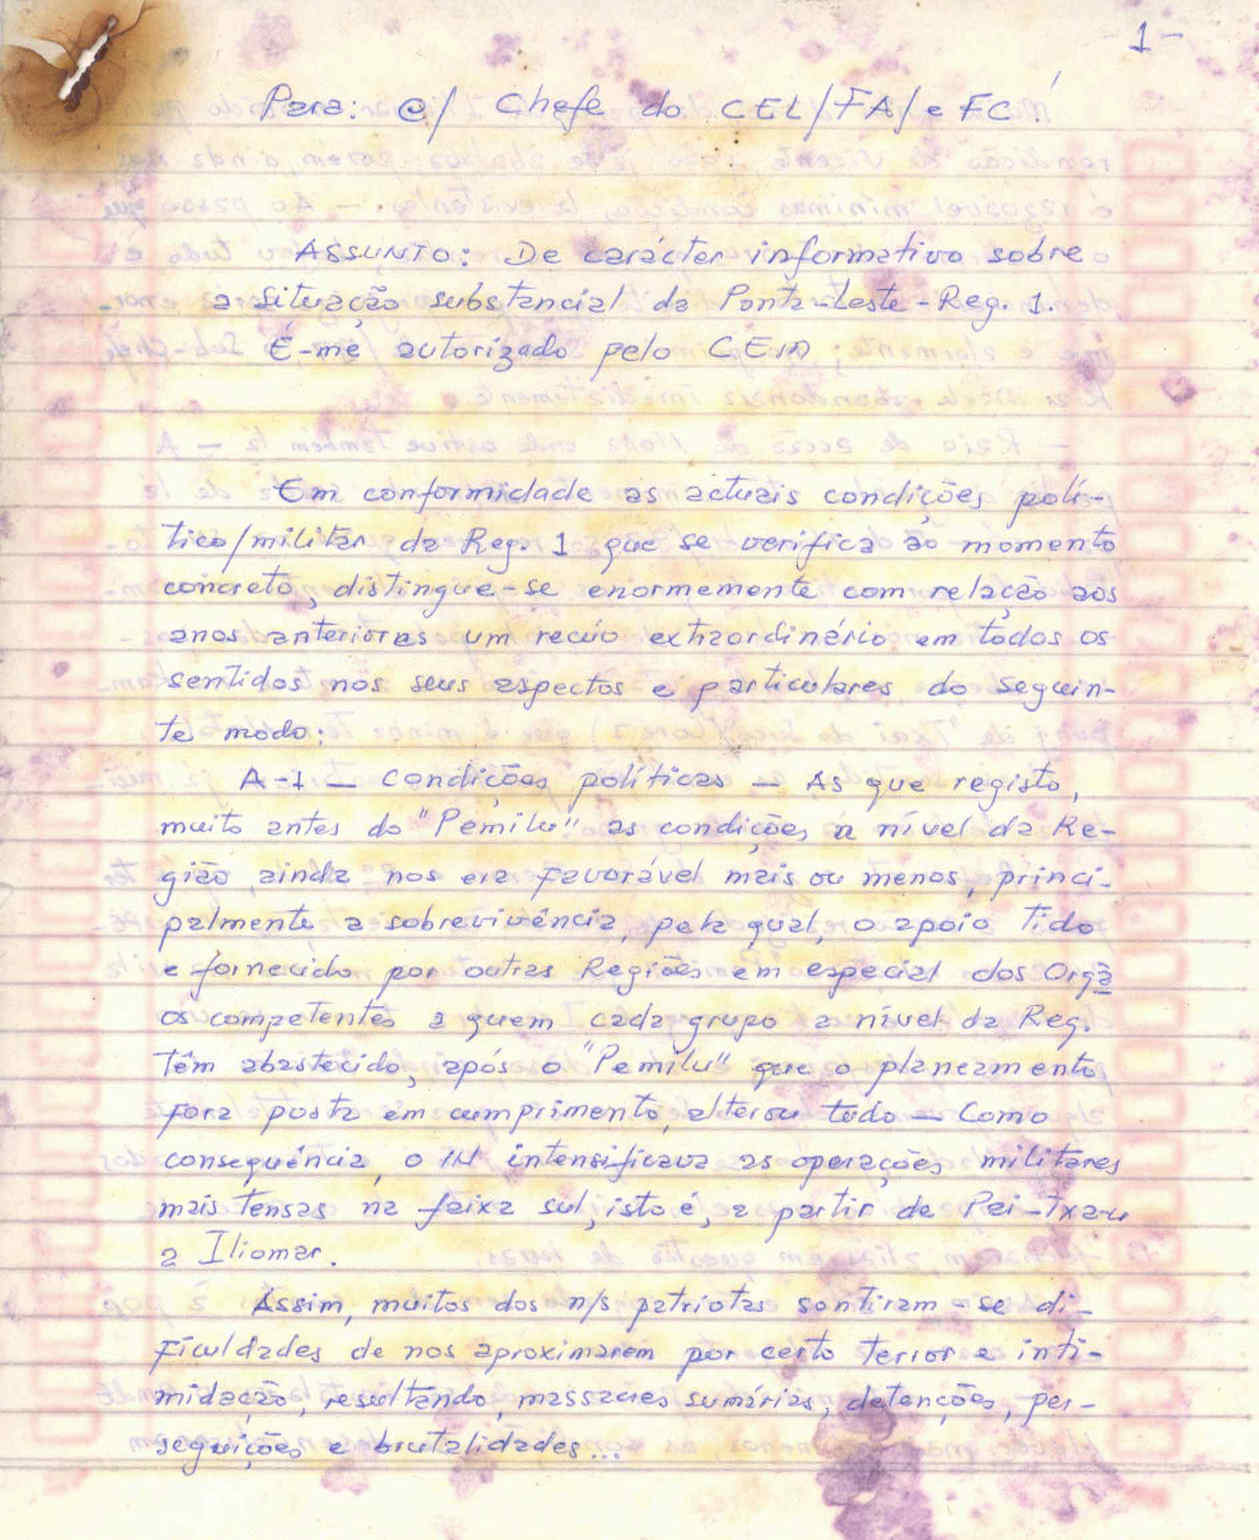 1-
Para: C/ Chefe do CEL/FA/e FC!
ASSUNTO: De carácter informativo sobre
a situação substancial da Ponta-Leste-Reg. 1.
É-me autorizado pelo
Em conformidade as actuais condições polí-
tico/militar da Reg. 1 que se verifica ao momento
concreto, distingue-se enormemente com relação aos
anos anteriores um recúo extraordinário em todos os
sentidos nos seus aspectos e particulares do seguin-
te modo:
A-1 — Condições políticas — As que registo,
muito antes do "Pemilu" as condições a nível da Re-
gião ainda nos era favorável mais ou menos, princi-
palmente a sobrevivência, pela qual, o apoio tido
e fornecido por outras Regiões em especial dos Orgã
os competentes a quem cada grupo a nível da Reg.
têm abastecido, após o "Pemilu" que o planeamento
fora posta em cumprimento, alterou tudo — Como
consequência, o IN intensificava as operações militares
mais tensas na faixa sul, isto é, a partir de Pai-Txau
a Iliomar.
Assim, muitos dos n/s patriotas sentiram-se di-
ficuldades de nos aproximarem por certo terror e inti-
midação, resultando, massacres sumárias, detenções, per-
seguições e brutalidades...